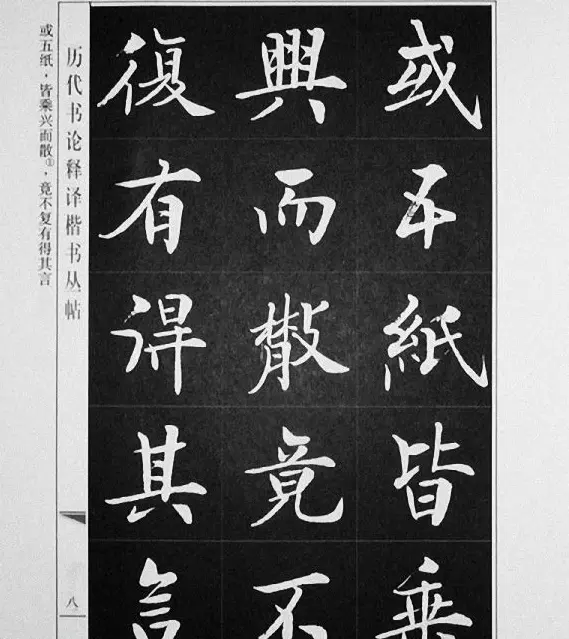 或五紙皆乗
興而散竟不
復有得其言
历代书论释译楷书丛帖
八
或五纸，皆乘兴而散①，竟不复有得其言